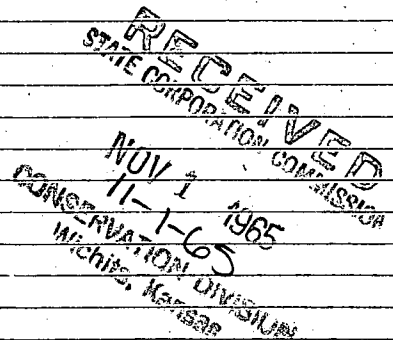 RECEIVED
STATE CORPORATION COMMISSION
NOV 1 1965
11-1-65
CONSERVATION DIVISION
Wichita, Kansas